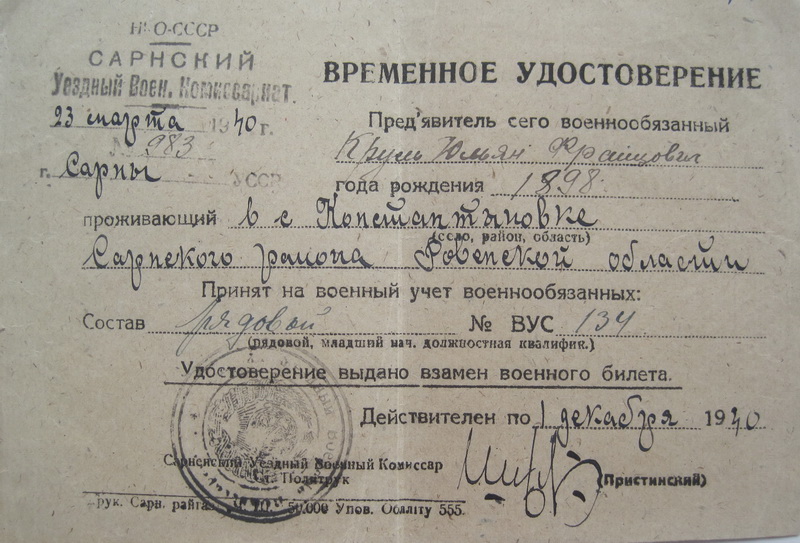 НКО-СССР
САРНСКИЙ
Уездный Воен. Комиссариат
23 марта 1940 г.
№ 983
г. Сарны УССР
ВРЕМЕННОЕ УДОСТОВЕРЕНИЕ
Пред'явитель сего военнообязанный
Круль Юльян Францович
года рождения 1898
проживающий в с Константыновке
(село, район, область)
Сарнского района Ровенской области
Принят на военный учет военнообязанных:
Состав рядовой № ВУС 134
(рядовой, младший нач. должностная квалифик.)
Удостоверение выдано взамен военного билета.
Действителен по 1 декабря 1940
Сарненский Уездный Военный Комиссар
Ст. Политрук
(Пристинский)
рук. Сарн. райга 50.000 Упов. Обллiту 555.